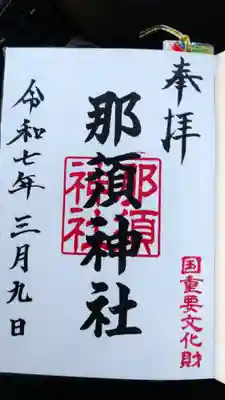 奉拝
国重要文化財
那須神社
那須神社
令和七年三月九日